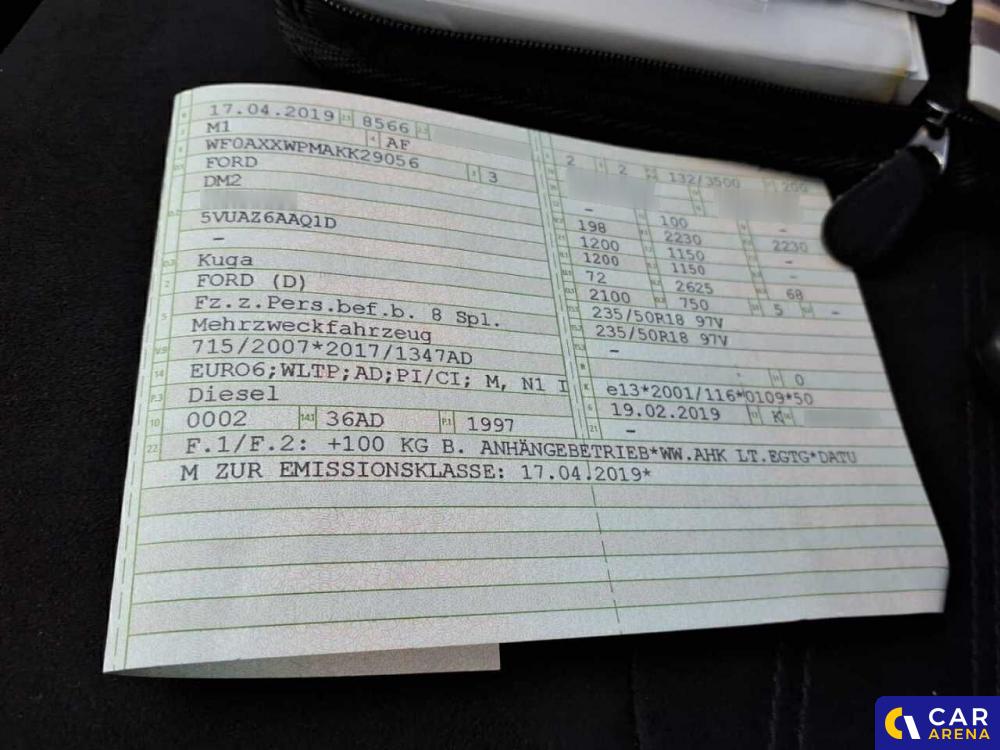 17.04.2019 8566
M1 AF
WF0AXXWPMAKK29056
FORD 3
DM2
5VUAZ6AAQ1D
–
Kuga
FORD (D)
Fz.z.Pers.bef.b. 8 Spl.
Mehrzweckfahrzeug
715/2007*2017/1347AD
EURO6;WLTP;AD;PI/CI; M, N1 I
Diesel
0002 14.1 36AD P.1 1997
2 2 132/3500 200
–
198 100 –
1200 2230 2230
1200 1150 –
72 1150 –
2100 2625 68
750 5 –
235/50R18 97V
235/50R18 97V
–
0
e13*2001/116*0109*50
19.02.2019 K
–
22 F.1/F.2: +100 KG B. ANHÄNGEBETRIEB*WW.AHK LT.EGTG*DATU
M ZUR EMISSIONSKLASSE: 17.04.2019*
CAR
ARENA